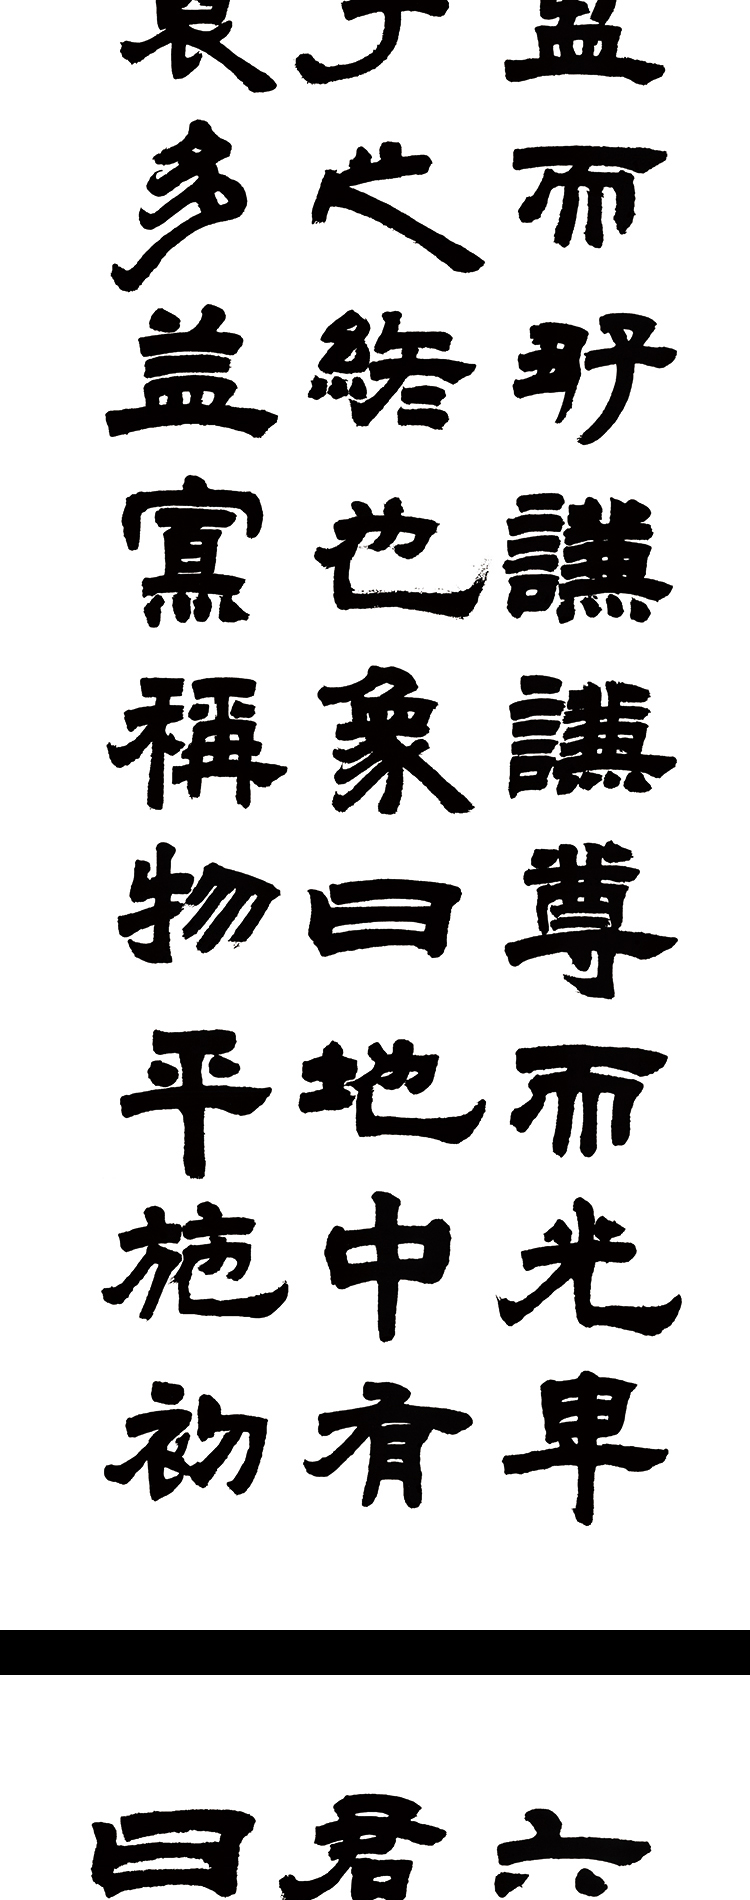 盈而好謙謙尊而光卑
子之終也象曰地中有
裒多益寡稱物平施初
六
君
曰